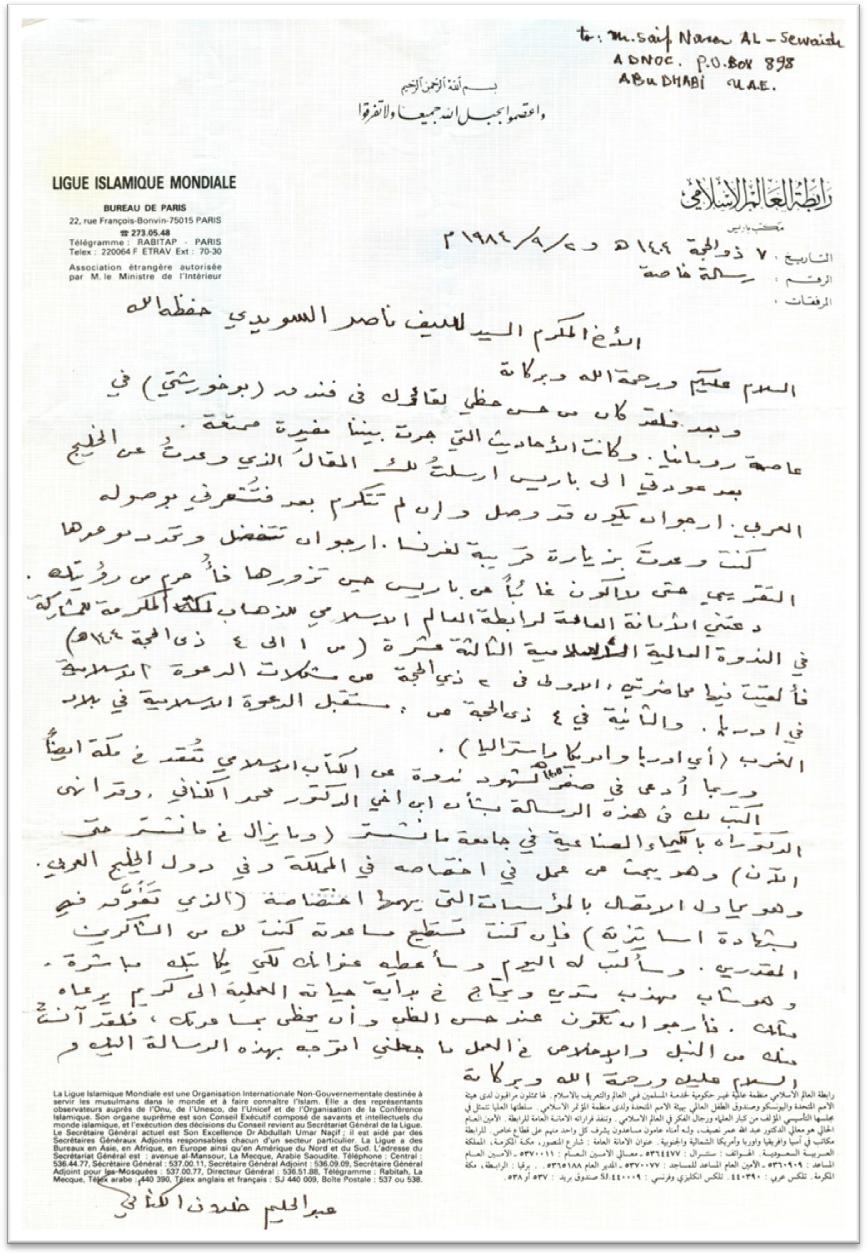 to: M. Saif Naser AL-Sewaidi
ADNOC. P.O.Box 898
ABU DHABI U.A.E.
بسم الله الرحمن الرحيم
واعتصموا بحبل الله جميعا ولا تفرقوا
LIGUE ISLAMIQUE MONDIALE
BUREAU DE PARIS
22, rue François-Bonvin-75015 PARIS
☎ 273.05.48
Télégramme : RABITAP - PARIS
Telex : 220064 F ETRAV Ext : 70-30
Association étrangère autorisée
par M. le Ministre de l'Intérieur
رابطة العالم الإسلامي
مكتب باريس
التاريخ : ٧ ذو الحجة ١٤٠٤ هـ و ٢/٩/١٩٨٤ م
الرقم : رسالة خاصة
المرفقات :
الأخ المكرم السيد سيف ناصر السويدي حفظه الله
السلام عليكم ورحمة الله وبركاته
وبعد فلقد كان من حسن حظي لقاؤك في فندق (بوخورشتي) في
عاصمة رومانيا. وكانت الأحاديث التي جرت بيننا مفيدة ممتعة.
بعد عودتي الى باريس ارسلتُ لك المقال الذي وعدتُ عن الخليج
العربي. ارجو ان يكون قد وصل وإن لم تتكرم بعد فتُشعرني بوصوله
كنت وعدتَ بزيارة قريبة لفرنسا. ارجو ان تتفضل وتحدد موعدها
التقريبي حتى لا اكون غائباً عن باريس حين تزورها فأُحرم من رؤيتك.
دعتني الأمانة العامة لرابطة العالم الاسلامي للذهاب لمكة المكرمة للمشاركة
في الندوة العالمية الإسلامية الثالثة عشرة (من ١ الى ٤ ذي الحجة ١٤٠٤هـ)
فألقيت فيها محاضرتين، الاولى في ٢ ذي الحجة عن مشكلات الدعوة الاسلامية
في اوربا. والثانية في ٤ ذي الحجة عن: مستقبل الدعوة الاسلامية في بلاد
الغرب (أي اوربا وامريكا واستراليا).
وربما أُدعى في صفر لشهود ندوة عن الكتاب الاسلامي تُعقد في مكة ايضاً
اكتب لك في هذه الرسالة بشأن ابن اخي الدكتور محمد الكتاني. وقد انهى
الدكتوراه بالكيمياء الصناعية في جامعة مانشستر (وما يزال في مانشستر حتى
الآن) وهو يبحث عن عمل في اختصاصه في المملكة وفي دول الخليج العربي.
وهو يحاول الاتصال بالمؤسسات التي يهمها اختصاصه (الذي تَفَوَّق فيه
بشهادة اساتيذه) فإن كنت تستطيع مساعدته كنت لك من الشاكرين
المقدرين. وسأكتب له اليوم وسأعطيه عنوانك لكي يكاتبك مباشرة.
وهو شاب مهذب متدين ويحتاج في بداية حياته العملية الى كريم يرعاه
مثلك. فأرجو ان تكون عند حسن الظن وأن يحظى بمساعدتك، فلقد آنستُ
منك من النبل والإخلاص في العمل ما جعلني اتوجه بهذه الرسالة اليك و
السلام عليك ورحمة الله وبركاته
La Ligue Islamique Mondiale est une Organisation Internationale Non-Gouvernementale destinée à
servir les musulmans dans le monde et à faire connaître l'Islam. Elle a des représentants
observateurs auprès de l'Onu, de l'Unesco, de l'Unicef et de l'Organisation de la Conférence
Islamique. Son organe suprême est son Conseil Exécutif composé de savants et intellectuels du
monde islamique, et l'exécution des décisions du Conseil revient au Secrétaire Général de la Ligue.
Le Secrétaire Général actuel est Son Excellence Dr Abdullah Umar Naçif ; il est aidé par des
Secrétaires Généraux Adjoints responsables chacun d'un secteur particulier. La Ligue a des
Bureaux en Asie, en Afrique, en Europe ainsi qu'en Amérique du Nord et du Sud. L'adresse du
Secrétariat Général est : avenue al-Mansour, La Mecque, Arabie Saoudite. Téléphone : Central :
536.44.77, Secrétaire Général : 537.00.11, Secrétaire Général Adjoint : 536.09.09, Secrétaire Général
Adjoint pour les Mosquées : 537.00.77, Directeur Général : 536.51.88, Télégrammes : Rabitah, La
Mecque, Télex arabe : 440 390, Télex anglais et français : SJ 440 009, Boîte Postale : 537 ou 538.
رابطة العالم الإسلامي منظمة عالمية غير حكومية لخدمة المسلمين في العالم والتعريف بالاسلام. لها ممثلون مراقبون لدى هيئة
الأمم المتحدة واليونسكو وصندوق الطفل العالمي بهيئة الامم المتحدة ولدى منظمة المؤتمر الإسلامي. سلطتها العليا تتمثل في
مجلسها التأسيسي المؤلف من كبار العلماء ورجال الفكر في العالم الاسلامي. وتنفذ قراراته الامانة العامة للرابطة. الأمين العام
الحالي هو معالي الدكتور عبد الله عمر نصيف، وله أمناء عامون مساعدون يشرف كل واحد منهم على قطاع خاص. للرابطة
مكاتب في آسيا وافريقيا واوربا وأمريكا الشمالية والجنوبية. عنوان الامانة العامة : شارع المنصور، مكة المكرمة، المملكة
العربية السعودية. الهواتف : سنترال : ٥٣٦٤٤٧٧ ـ معالي الامين العام : ٥٣٧٠٠١١ ـ الامين العام
المساعد : ٥٣٦٠٩٠٩ ـ الأمين العام المساعد للمساجد : ٥٣٧٠٠٧٧ ـ المدير العام : ٥٣٦٥١٨٨. برقيا : الرابطة، مكة
المكرمة. تلكس عربي : ٤٤٠٣٩٠. تلكس انكليزي وفرنسي : SJ ٤٤٠٠٠٩ صندوق بريد : ٥٣٧ أو ٥٣٨.
عبد الحليم خلدون الكتاني